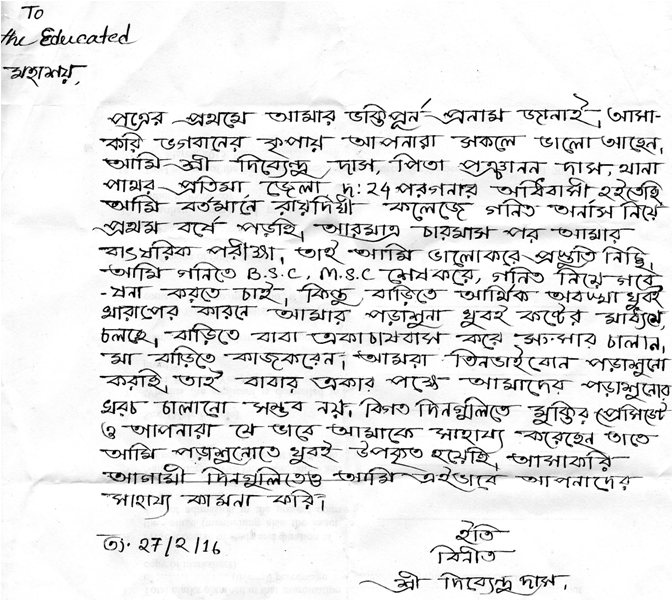 To
the Educated
মহাশয়,
পত্রের প্রথমে আমার ভক্তিপূর্ন প্রনাম জানাই, আসা-
করি ভগবানের কৃপায় আপনারা সকলে ভালো আছেন,
আমি শ্রী দিব্যেন্দু দাস, পিতা পঞ্চানন দাস, থানা
পাথর প্রতিমা, জেলা দ: 24 পরগনার অধিবাসী হইতেছি
আমি বর্তমানে রায়দিঘী কলেজে গনিত অর্নাস নিয়ে
প্রথম বর্ষে পড়ছি, আরমাত্র চারমাস পর আমার
বাৎষরিক পরীক্ষা, তাই আমি ভালোকরে প্রস্তুতি নিচ্ছি,
আমি গনিতে B.S.C, M.S.C শেষ করে, গনিত নিয়ে গবে
-ষনা করতে চাই, কিন্তু বাড়িতে আর্থিক অবস্থা খুবই
খারাপের কারনে আমার পড়াশুনা খুবই কষ্টের মাধ্যমে
চলছে, বাড়িতে বাবা একা চাষবাস করে সংসার চালান,
মা বাড়িতে কাজকরেন, আমরা তিনভাইবোন পড়াশুনো
করছি, তাই বাবার একার পক্ষে আমাদের পড়াশুনোর
খরচ চালানো সম্ভব নয়, বিগত দিনগুলিতে মুক্তির প্রেসিডেন্ট
ও আপনারা যে ভাবে আমাকে সাহায্য করেছেন তাতে
আমি পড়াশুনোতে খুবই উপকৃত হয়েছি, আসাকরি
আগামী দিনগুলিতেও আমি এইভাবে আপনাদের
সাহায্য কামনা করি,
তাং. 27/2/16
ইতি
বিনীত
শ্রী দিব্যেন্দু দাস.